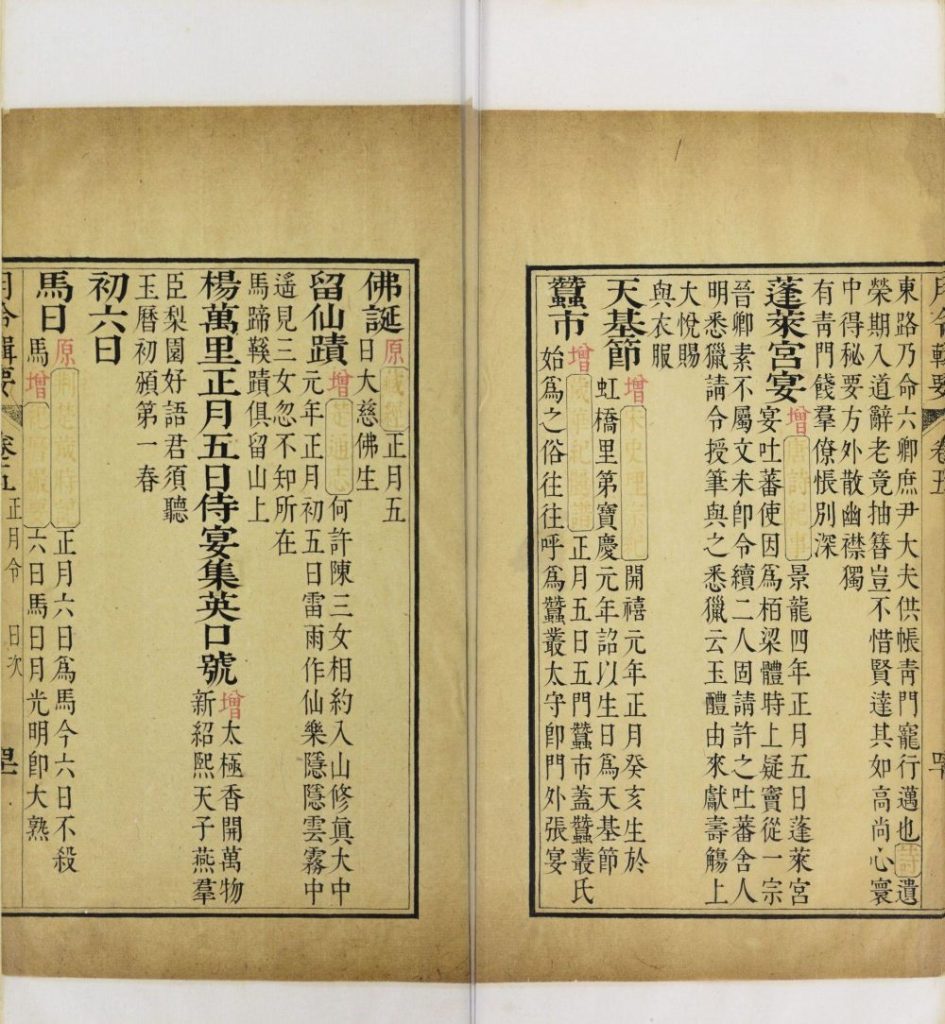 月令輯要 卷五
東路乃命六卿庶尹大夫供帳青門寵行邁也詩遺
榮期入道辭老竟抽簪豈不惜賢達其如高尚心寰
中得秘要方外散幽襟獨
有青門餞羣僚悵別深
蓬萊宮宴 增 唐詩紀事 景龍四年正月五日蓬萊宮
宴吐蕃使因爲栢梁體時上疑竇從一宗
晉卿素不屬文未即令續二人固請許之吐蕃舍人
明悉獵請令授筆與之悉獵云玉醴由來獻壽觴上
大悅賜
與衣服
天基節 增 宋史理宗紀 開禧元年正月癸亥生於
虹橋里第寶慶元年詔以生日爲天基節
蠶市 增 歲華紀麗譜 正月五日五門蠶市蓋蠶叢氏
始爲之俗往往呼爲蠶叢太守卽門外張宴
佛誕 原 藏經 正月五
日大慈佛生
留仙蹟 增 通志 何許陳三女相約入山修眞大中
元年正月初五日雷雨作仙樂隱隱雲霧中
遙見三女忽不知所在
馬蹄鞵蹟俱留山上
楊萬里正月五日侍宴集英口號 增 太極香開萬物
新紹熙天子燕羣
臣梨園好語君須聽
玉曆初頒第一春
初六日
馬日 原 正月六日爲馬今六日不殺
馬 增 六日馬日月光明卽大熟
月令輯要 卷五 正月令 日次